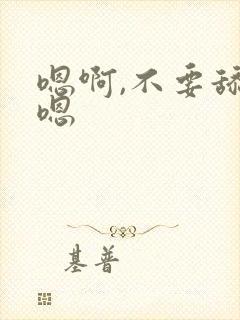 嗯啊,不要舔
嗯
基普